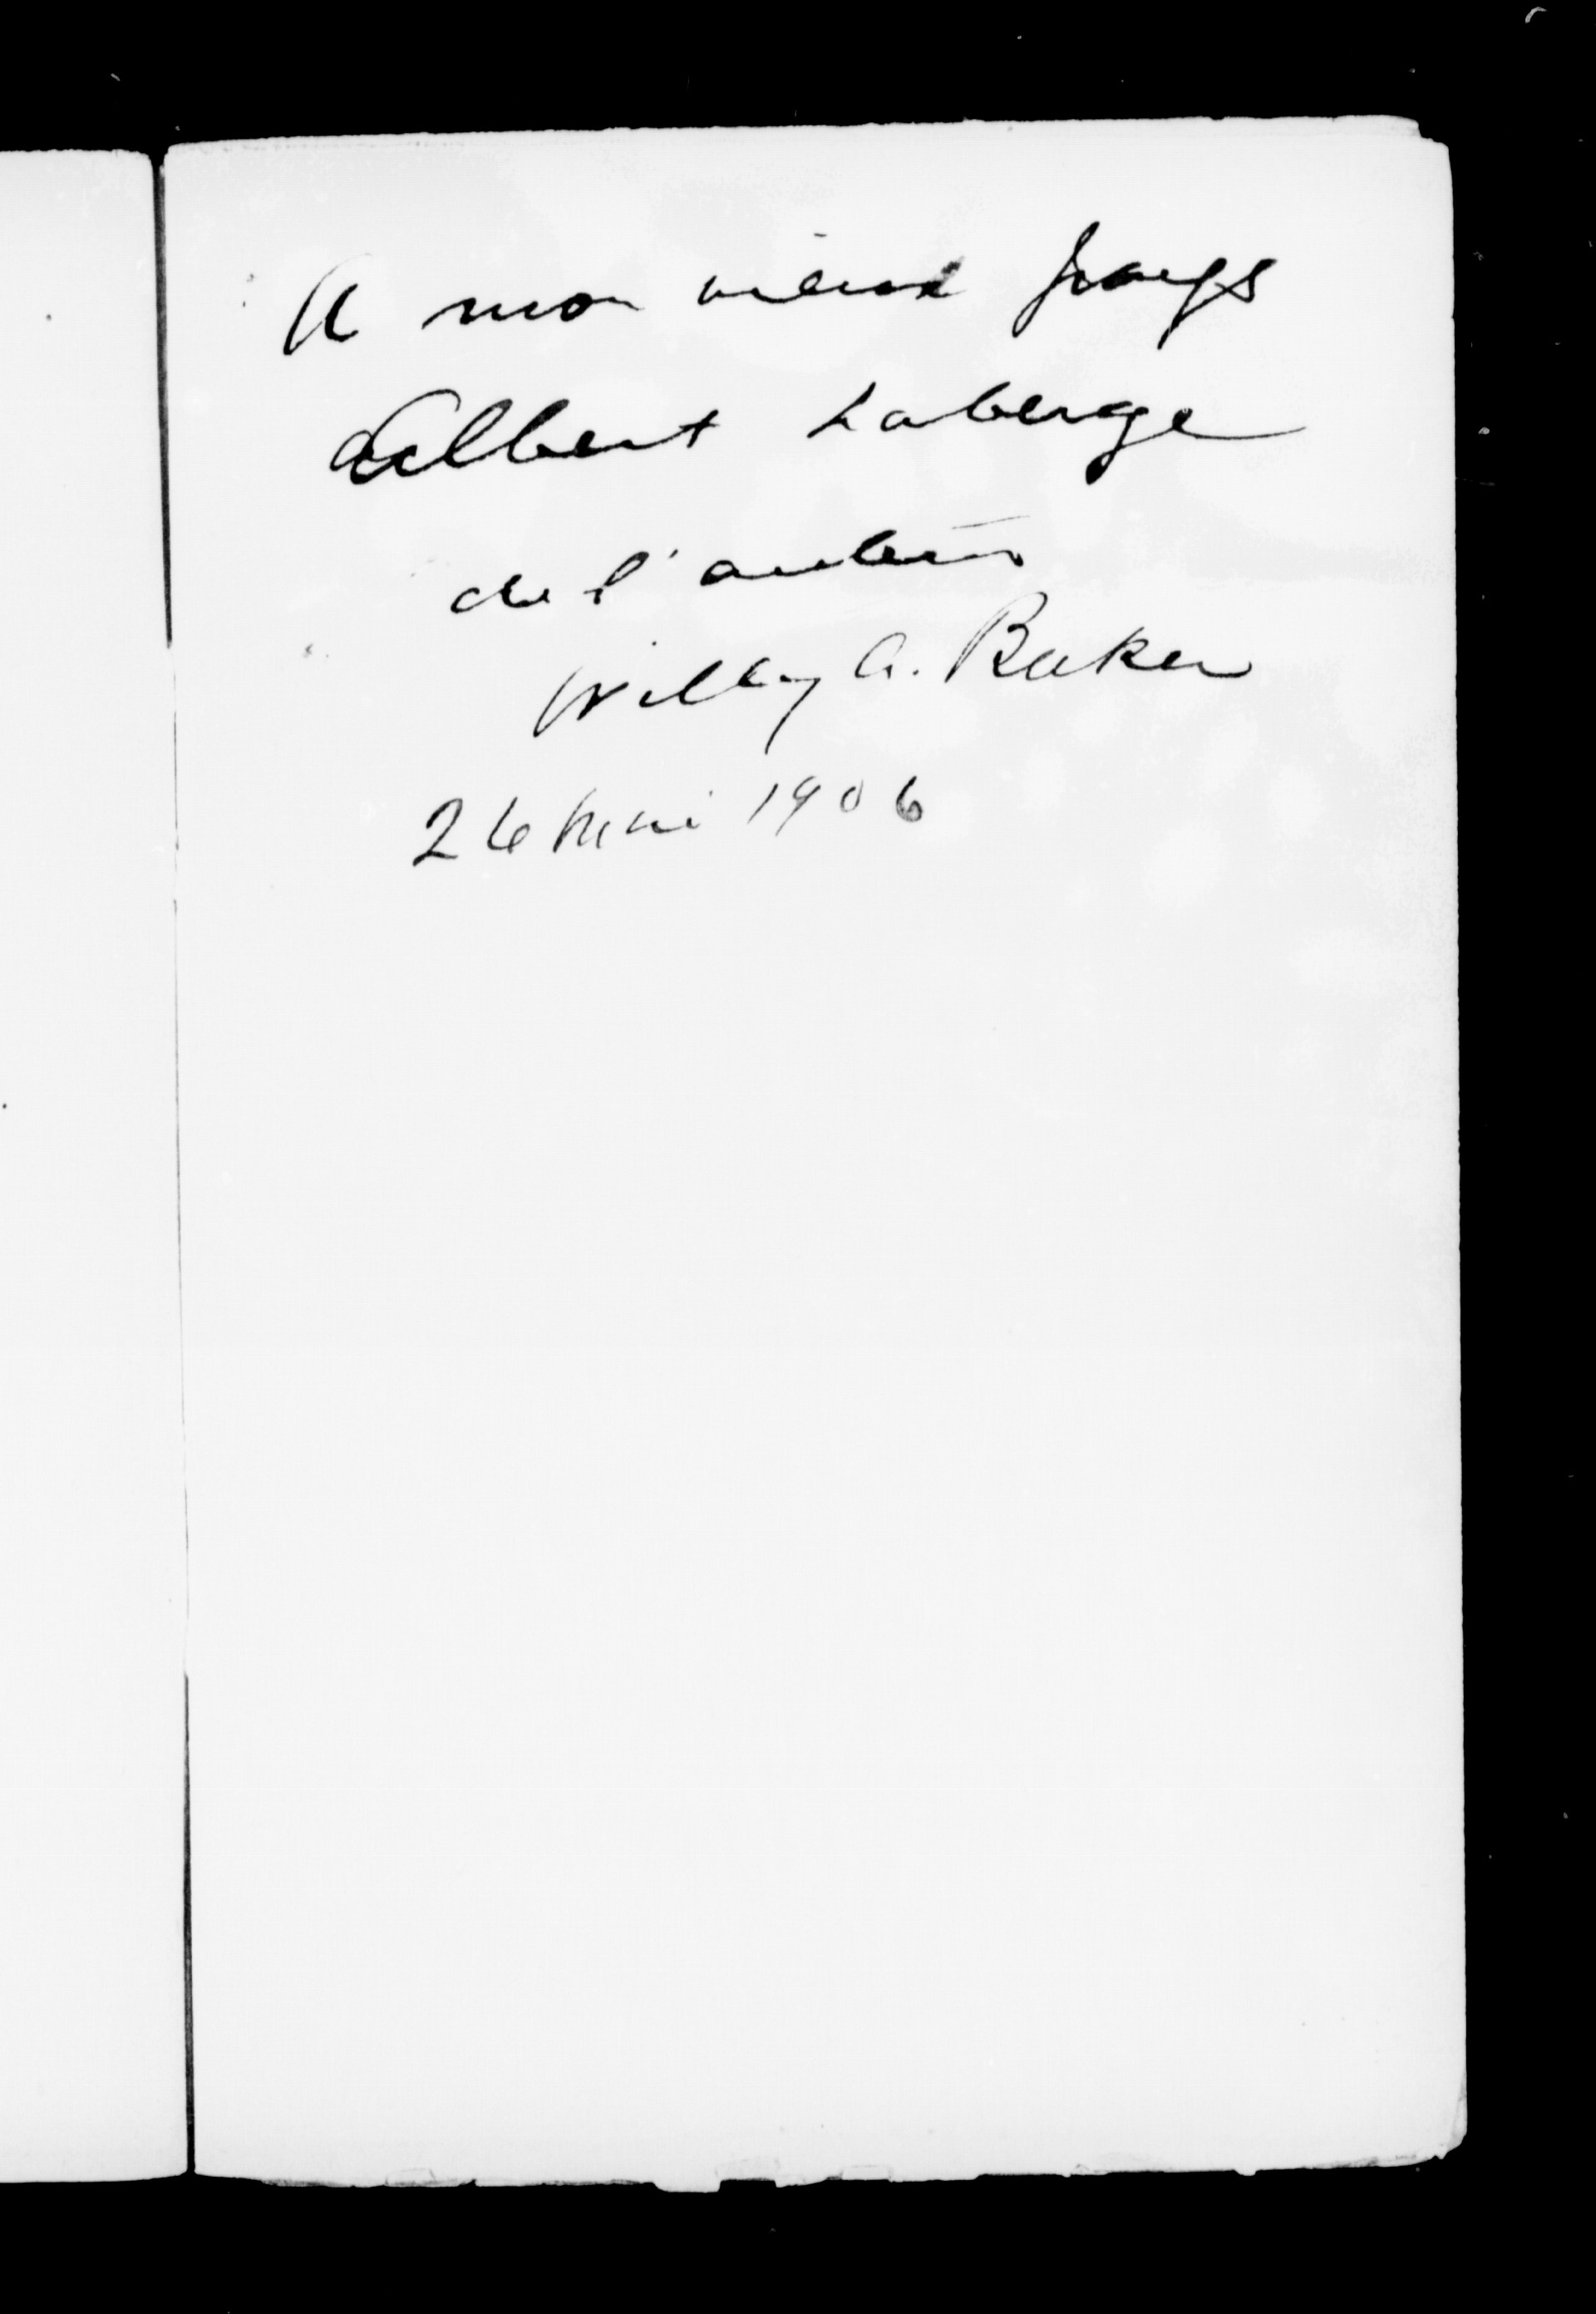 A mon vieux pays
Albert Laberge
de l'auteur
Willy A. Baker
26 Mai 1906